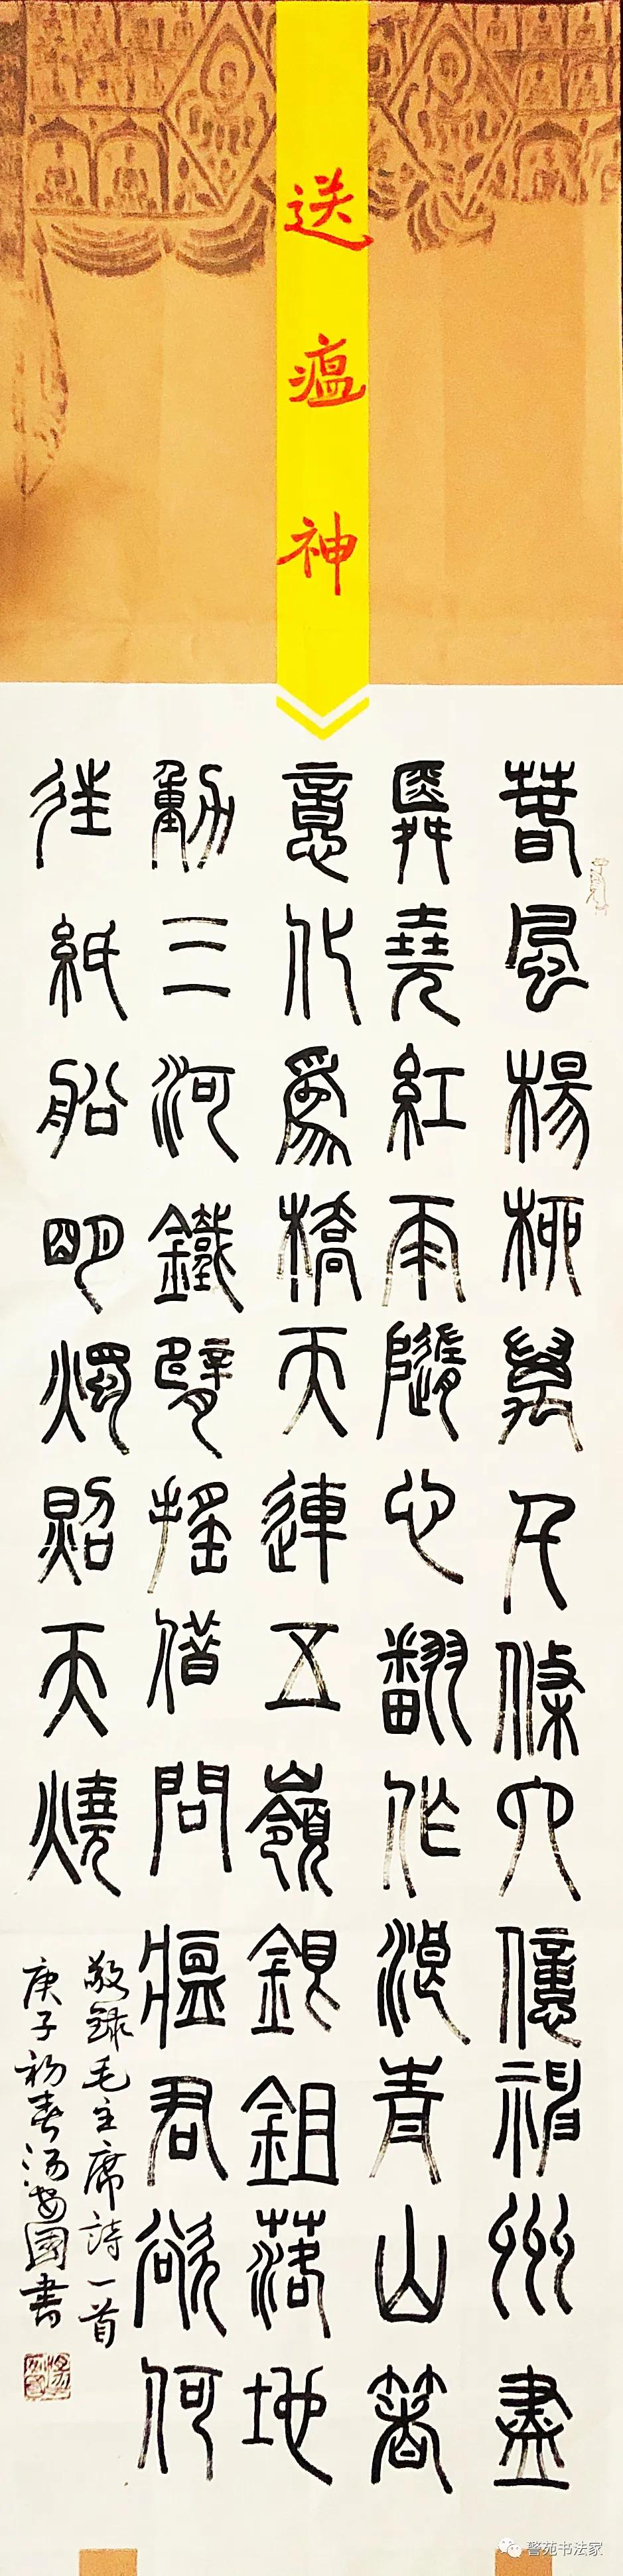 送瘟神
春風楊柳萬千條六億神州盡
舜堯紅雨隨心翻作浪青山著
意化爲橋天連五嶺銀鉏落地
動三河鐵臂搖借問瘟君欲何
往紙船明燭照天燒
敬錄毛主席詩一首
庚子初春安國書
警苑书法家